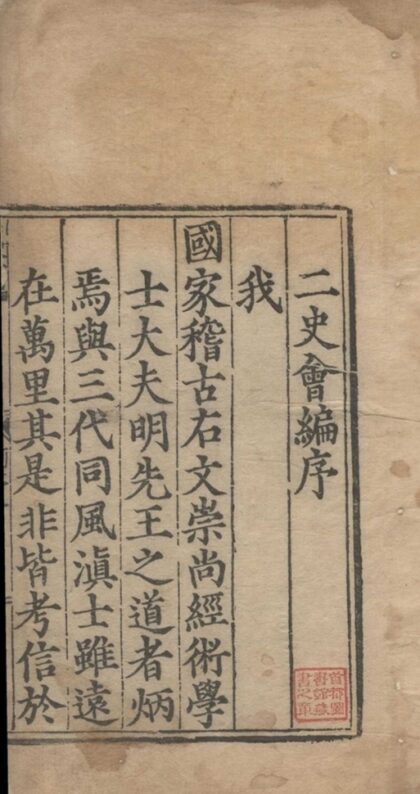 二史會編序
我
國家稽古右文崇尚經術學
士大夫明先王之道者炳
焉與三代同風滇士雖遠
在萬里其是非皆考信於
首都圖
書館藏
書之章